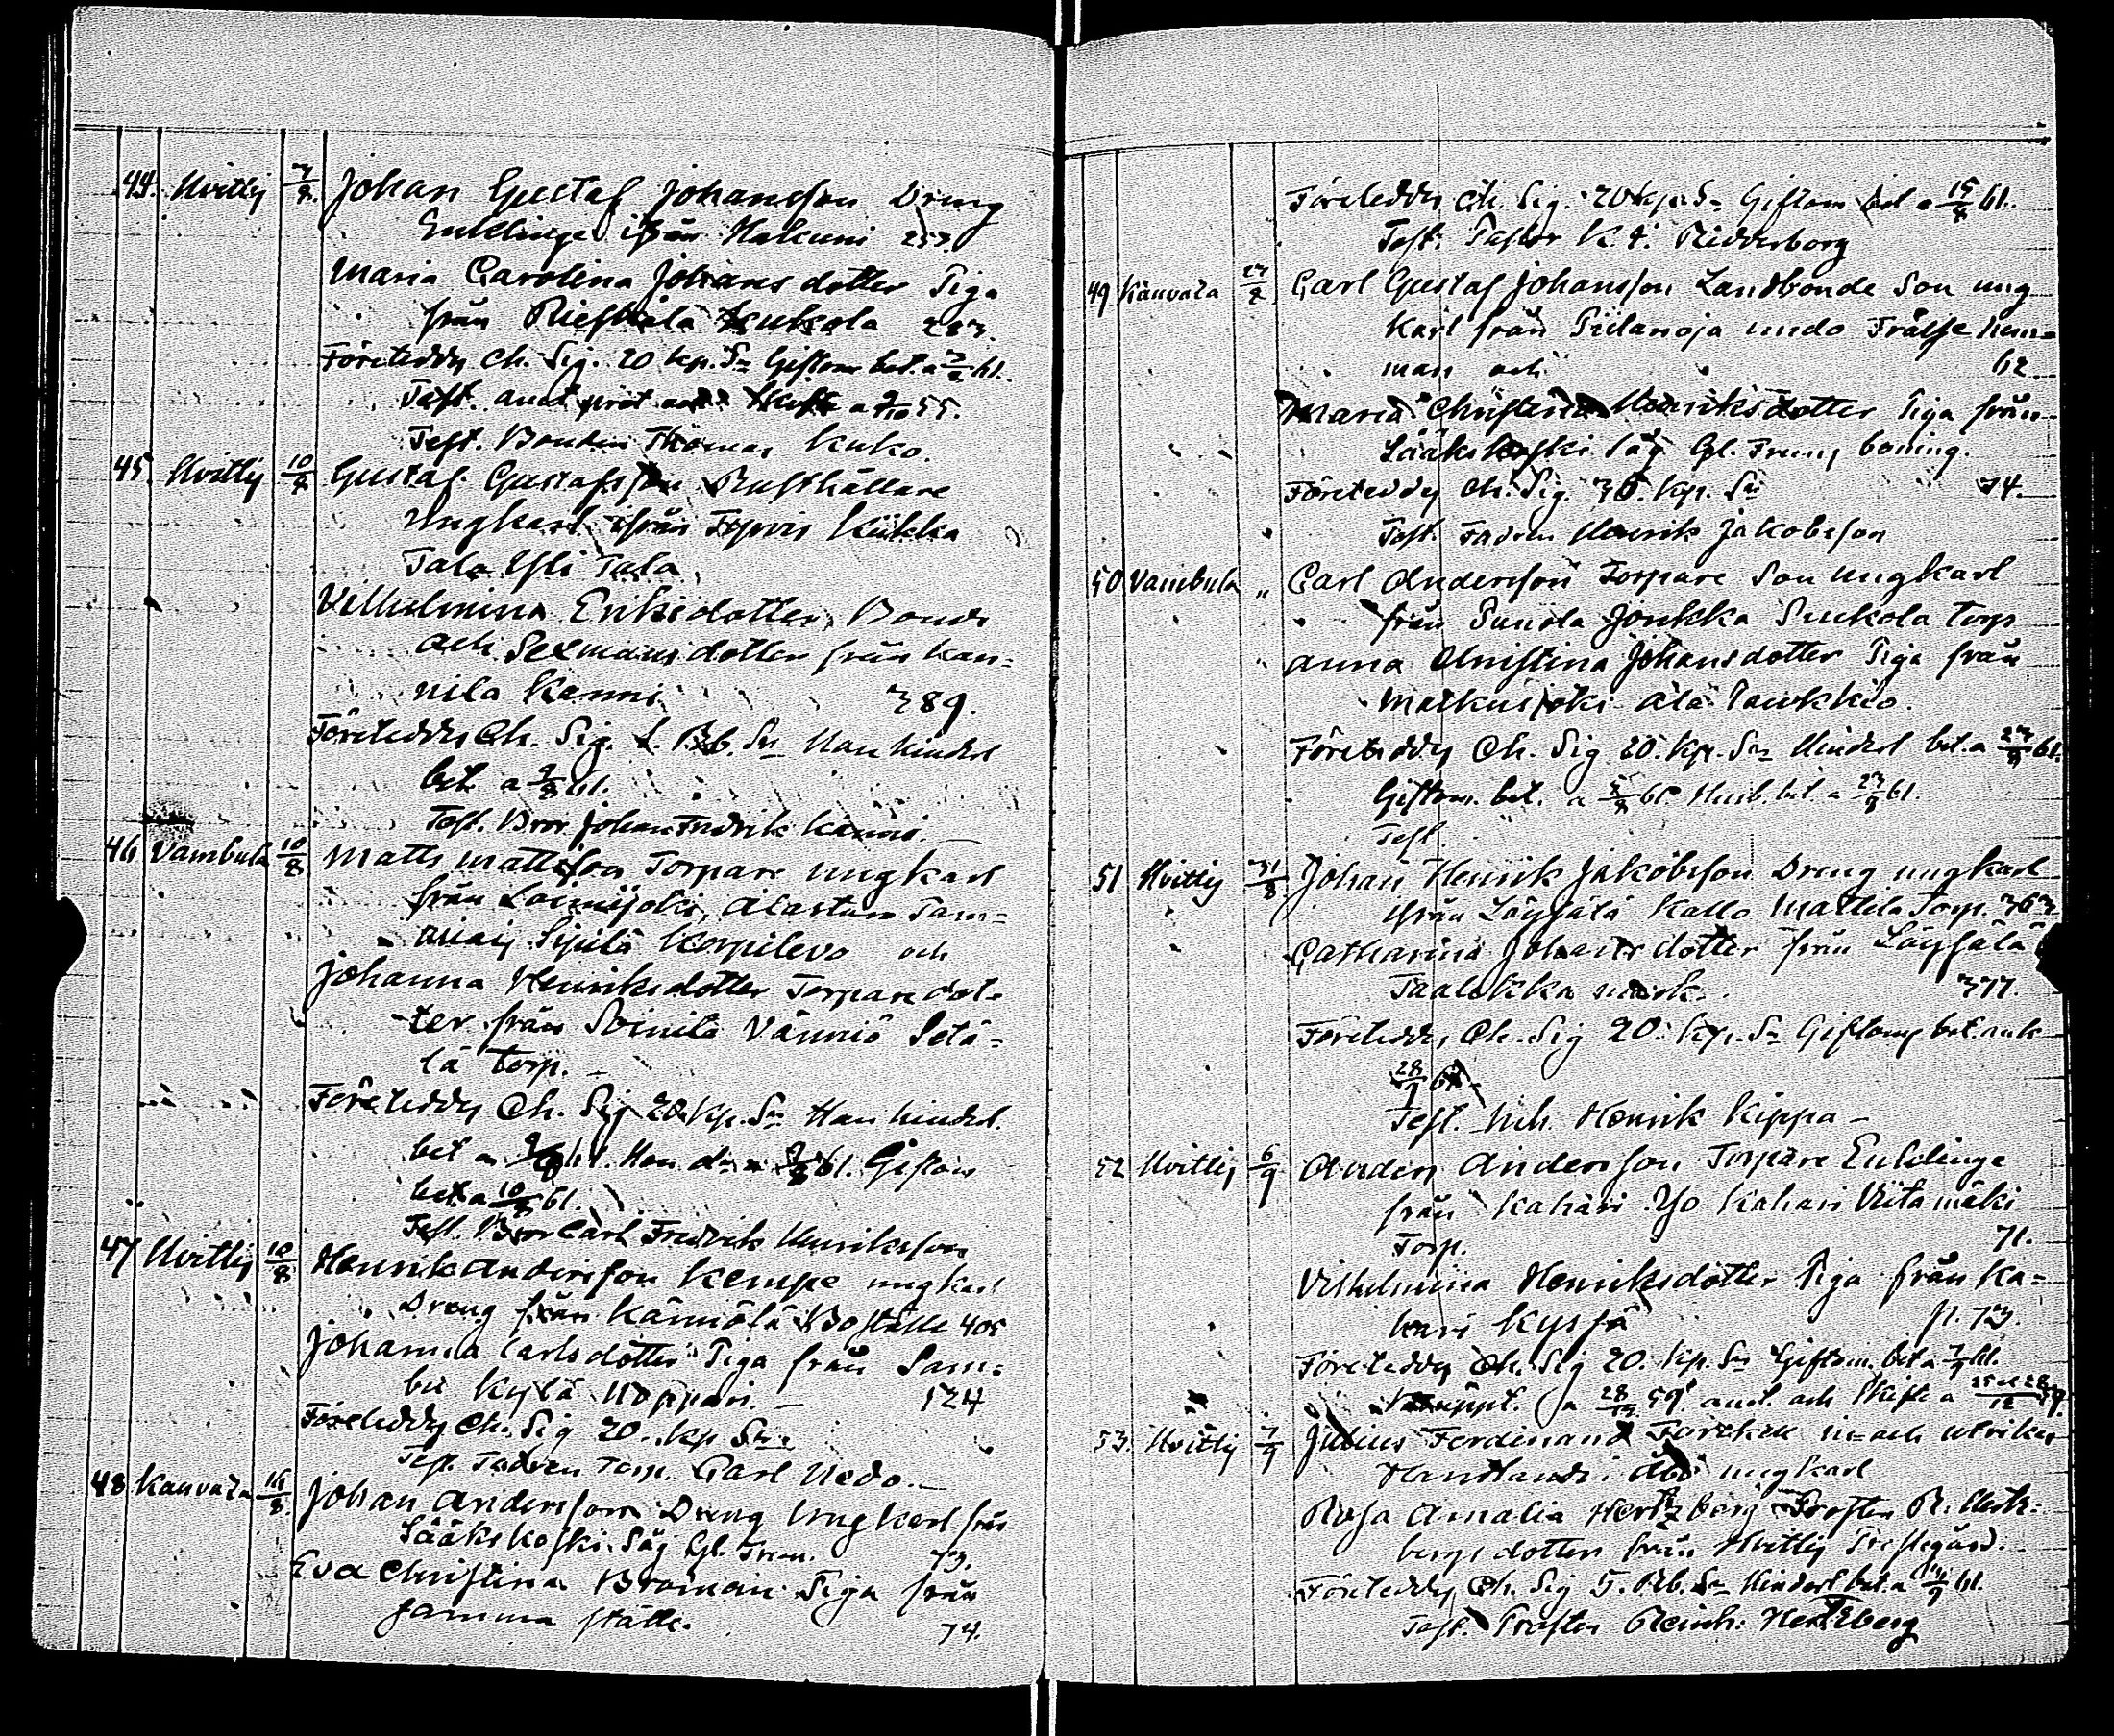 44. Hvittij 7/8. Johan Gustaf Johansson Dreng
Enklinge ifrån Hakuni 253.
Maria Carolina Johans dotter Piga
från Riesälä Kukola 283.
Företeddes Ch. Sig. 20 kp. Sr Giftom bet. a 7/8 61.
Test. och Skift a 9/10 55.
Test. Bonden Thomas Kuko.
45. Hvittij 10/8 Gustaf Gustafsson Rusthållare
Ungkarl ifrån Kiikka
Tala Yli Tala
Vilhelmina Eriksdotter, Bonde
och Sexmans dotter från Kan=
nila Kanni 389.
Företeddes Ch. Sig. 1. Rb. Sr Han hinderl
bet a 9/8 61.
Test. Bror Johan Fredrik Kanni.
46 Vambula 10/8 Matts Mattsson Torpare ungkarl
från Loimijoki, Alastaro Tam=
miaij Sipilä Korpilevo och
Johanna Henriksdotter Torpare dot=
ter från Soinila Vännio Setä=
lä torp.
Företeddes Ch. Sig 20 kp. Sr Han hinderl.
bet a 9/8 61. Hon d:o a 9/8 61. Giftom
bet a 10/8 61.
Test. Bror Carl Fredrik Henriksson
47 Hvittij 10/8 Henrik Andersson Kempe ungkarl
Dreng från Kämölä Boställe 405
Johanna Carlsdotter Piga från Sam=
bu Kylä Hoppari. 124
Företeddes Ch. Sig 20. kp Sr
Test. Fadren Torp. Carl Uedo.
48 Kauvaza 16/8. Johan Andersson Dreng Ungkarl från
Sääkskoski Såg Gl.
73.
Eva Christina Broman Piga från
samma ställe. 74.
Företeddes Ch. Sig. 20 kp. Sr Giftom bet a 15/8 61.
Test. Pastor K. J. Ridderborg
49 Kauvaza 23/8 Carl Gustaf Johansson Landbonde Son ung
karl från Piilanoja under Frälse hem=
man och 62.
Maria Christina Henriksdotter Piga från
Sääkskoski Såg Gl. boning.
Företeddes Ch. Sig. 30. kp. Sr 74.
Test. Fadren Henrik Jakobsson
50 Vambula " Carl Andersson Torpare Son ungkarl
från Punola Jonkka Sukola torp
Anna Christina Johansdotter Piga från
Matkusjoki Ala
Företeddes Ch. Sig 20. kp. Sr Hinderl bet. a 23/8 61.
Giftom. bet. a 5/8 61. Husb. bet. a 23/9 61.
Test.
51 Hvittij 31/8 Johan Henrik Jakobsson Dreng ungkarl
från Löysälä Kallo Mattila Torp. 363
Catharina Johans dotter från Löysälä
377.
Företeddes Ch. Sig 20. kp. Sr Giftom bet. enk
28/7 61
Test. Henrik Kippa
52 Hvittij 6/9 Anders Andersson Torpare Enklinge
från Kahari Yso Kahari Viitamäki
Torp. 71.
Vilhelmina Henriksdotter Piga från Ka=
hari Kyssä p. 73.
Företeddes Ch. Sig 20. kp. Sr Giftom. bet a 7/9 61.
a 28/12 59 och Skift a 59.
53. Hvittij 7/9 Julius Ferdinand in= och utrikes
Handlande i Åbo ungkarl
Rosa Amalia Hertzberg Prosten R. Hertz=
bergs dotter från Hvittij Prestgård.
Företeddes Ch. Sig 5. Rb. Sr Hinderl bet. a 61.
Test. Prosten Reinh. Hertzberg